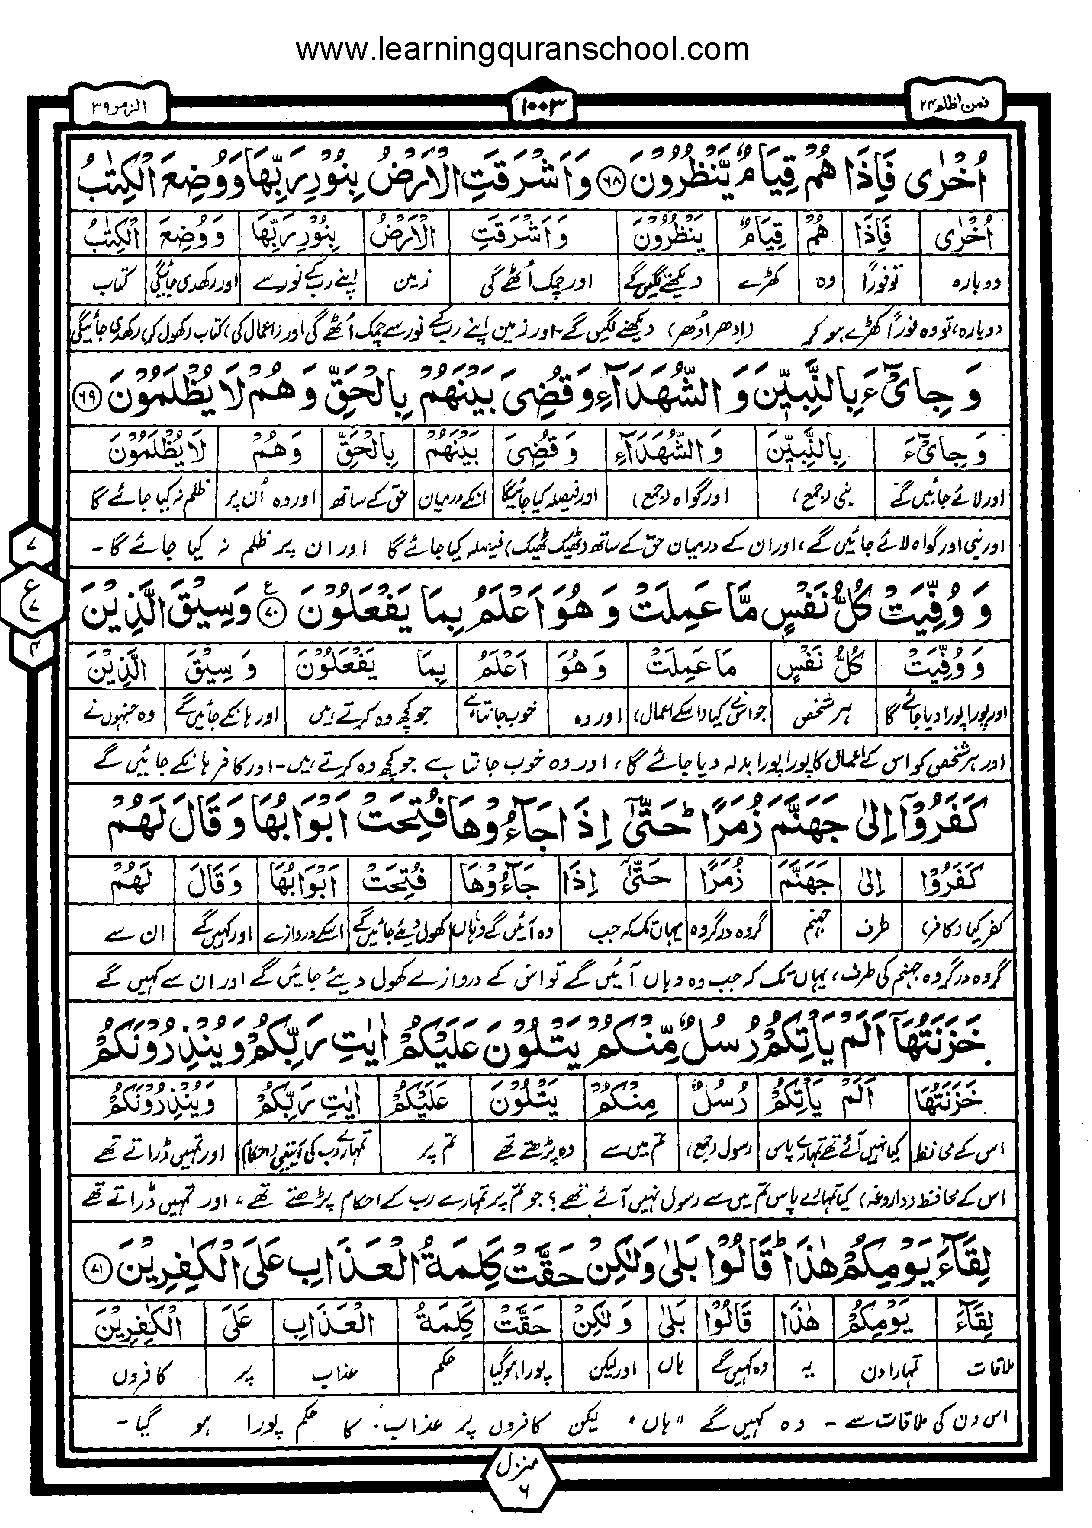 www.learningquranschool.com
الزمر ۳۹
۱۰۰۳
فمن اظلم ۲۴
اُخْرٰى فَاِذَا هُمْ قِيَامٌ يَّنْظُرُوْنَ ۶۸ وَاَشْرَقَتِ الْاَرْضُ بِنُوْرِ رَبِّهَا وَوُضِعَ الْكِتٰبُ
اُخْرٰى فَاِذَا هُمْ قِيَامٌ يَنْظُرُوْنَ وَاَشْرَقَتِ الْاَرْضُ بِنُوْرِ رَبِّهَا وَوُضِعَ الْكِتٰبُ
دوبارہ تو فوراً وہ کھڑے دیکھنے لگیں گے اور چمک اُٹھے گی زمین اپنے رب کے نور سے اور رکھدی جائیگی کتاب
دوبارہ، تو وہ فوراً کھڑے ہو کر (اِدھر اُدھر) دیکھنے لگیں گے۔ اور زمین اپنے رب کے نور سے چمک اُٹھے گی اور (اعمال کی) کتاب رکھول کی رکھدی جائیگی
وَجِایْٓءَ بِالنَّبِيّٖنَ وَالشُّهَدَآءِ وَقُضِىَ بَيْنَهُمْ بِالْحَقِّ وَهُمْ لَا يُظْلَمُوْنَ ۶۹
وَجِایْٓءَ بِالنَّبِيّٖنَ وَالشُّهَدَآءِ وَقُضِىَ بَيْنَهُمْ بِالْحَقِّ وَهُمْ لَا يُظْلَمُوْنَ
اور لائے جائیں گے نبی (جمع) اور گواہ (جمع) اور فیصلہ کیا جائیگا انکے درمیان حق کے ساتھ اور وہ اُن پر ظلم نہ کیا جائے گا
اور نبی اور گواہ لائے جائیں گے، اور ان کے درمیان حق کے ساتھ (ٹھیک ٹھیک) فیصلہ کیا جائے گا اور ان پر ظلم نہ کیا جائے گا۔
۷
ع
۷
۴
وَوُفِّيَتْ كُلُّ نَفْسٍ مَّا عَمِلَتْ وَهُوَ اَعْلَمُ بِمَا يَفْعَلُوْنَ ۷۰ ع وَسِيْقَ الَّذِيْنَ
وَوُفِّيَتْ كُلُّ نَفْسٍ مَا عَمِلَتْ وَهُوَ اَعْلَمُ بِمَا يَفْعَلُوْنَ وَسِيْقَ الَّذِيْنَ
اور پورا پورا دیا جائے گا ہر شخص جو اس نے کیا (اسکے اعمال) اور وہ خوب جانتا ہے جو کچھ وہ کرتے ہیں اور ہانکے جائیں گے وہ جنہوں نے
اور ہر شخص کو اس کے اعمال کا پورا پورا بدلہ دیا جائے گا، اور وہ خوب جانتا ہے جو کچھ وہ کرتے ہیں۔ اور کافر ہانکے جائیں گے
كَفَرُوْٓا اِلٰى جَهَنَّمَ زُمَرًا حَتّٰىٓ اِذَا جَآءُوْهَا فُتِحَتْ اَبْوَابُهَا وَقَالَ لَهُمْ
كَفَرُوْٓا اِلٰى جَهَنَّمَ زُمَرًا حَتّٰىٓ اِذَا جَآءُوْهَا فُتِحَتْ اَبْوَابُهَا وَقَالَ لَهُمْ
کفر کیا (کافر) طرف جہنم گروہ در گروہ یہاں تک کہ جب وہ آئیں گے وہاں کھول دیئے جائیں گے اسکے دروازے اور کہیں گے ان سے
گروہ در گروہ جہنم کی طرف، یہاں تک کہ جب وہ وہاں آئیں گے تو اس کے دروازے کھول دیئے جائیں گے اور ان سے کہیں گے
خَزَنَتُهَآ اَلَمْ يَاْتِكُمْ رُسُلٌ مِّنْكُمْ يَتْلُوْنَ عَلَيْكُمْ اٰيٰتِ رَبِّكُمْ وَيُنْذِرُوْنَكُمْ
خَزَنَتُهَا اَلَمْ يَاْتِكُمْ رُسُلٌ مِنْكُمْ يَتْلُوْنَ عَلَيْكُمْ اٰيٰتِ رَبِّكُمْ وَيُنْذِرُوْنَكُمْ
اس کے محافظ کیا نہیں آئے تھے تمہارے پاس رسول (جمع) تم میں سے وہ پڑھتے تھے تم پر تمہارے رب کی آیتیں (احکام) اور تمہیں ڈراتے تھے
اس کے محافظ (داروغہ) کیا تمہارے پاس تم میں سے رسول نہیں آئے تھے؟ جو تم پر تمہارے رب کے احکام پڑھتے تھے، اور تمہیں ڈراتے تھے
لِقَآءَ يَوْمِكُمْ هٰذَا ؕ قَالُوْا بَلٰى وَلٰكِنْ حَقَّتْ كَلِمَةُ الْعَذَابِ عَلَى الْكٰفِرِيْنَ ۷۱
لِقَآءَ يَوْمِكُمْ هٰذَا قَالُوْا بَلٰى وَلٰكِنْ حَقَّتْ كَلِمَةُ الْعَذَابِ عَلَى الْكٰفِرِيْنَ
ملاقات تمہارا دن یہ وہ کہیں گے ہاں اور لیکن پورا ہو گیا حکم عذاب پر کافروں
اس دن کی ملاقات سے۔ وہ کہیں گے "ہاں" لیکن کافروں پر عذاب کا حکم پورا ہو گیا۔
منزل ۶